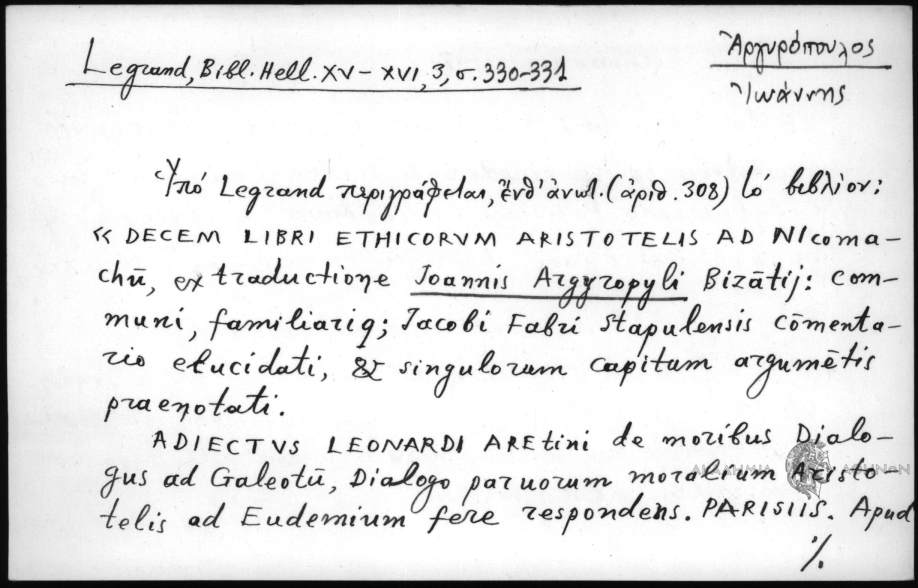 Legrand, Bibl. Hell. XV–XVI, 3, σ. 330-331
Ἀργυρόπουλος
Ἰωάννης
Ὑπό Legrand περιγράφεται, ἔνθ' ἀνωτ. (ἀριθ. 308) τό βιβλίον:
« DECEM LIBRI ETHICORVM ARISTOTELIS AD NIcoma-
chū, ex traductione Joannis Argyropyli Bizātij: com-
muni, familiariq; Jacobi Fabri Stapulensis cōmenta-
rio elucidati, & singulorum capitum argumētis
praenotati.
ADIECTVS LEONARDI AREtini de moribus Dialo-
gus ad Galeotū, Dialogo paruorum moralium Aristo-
telis ad Eudemium fere respondens. PARISIIS. Apud
ΑΚΑΔΗΜΙΑ ΑΘΗΝΩΝ
%.